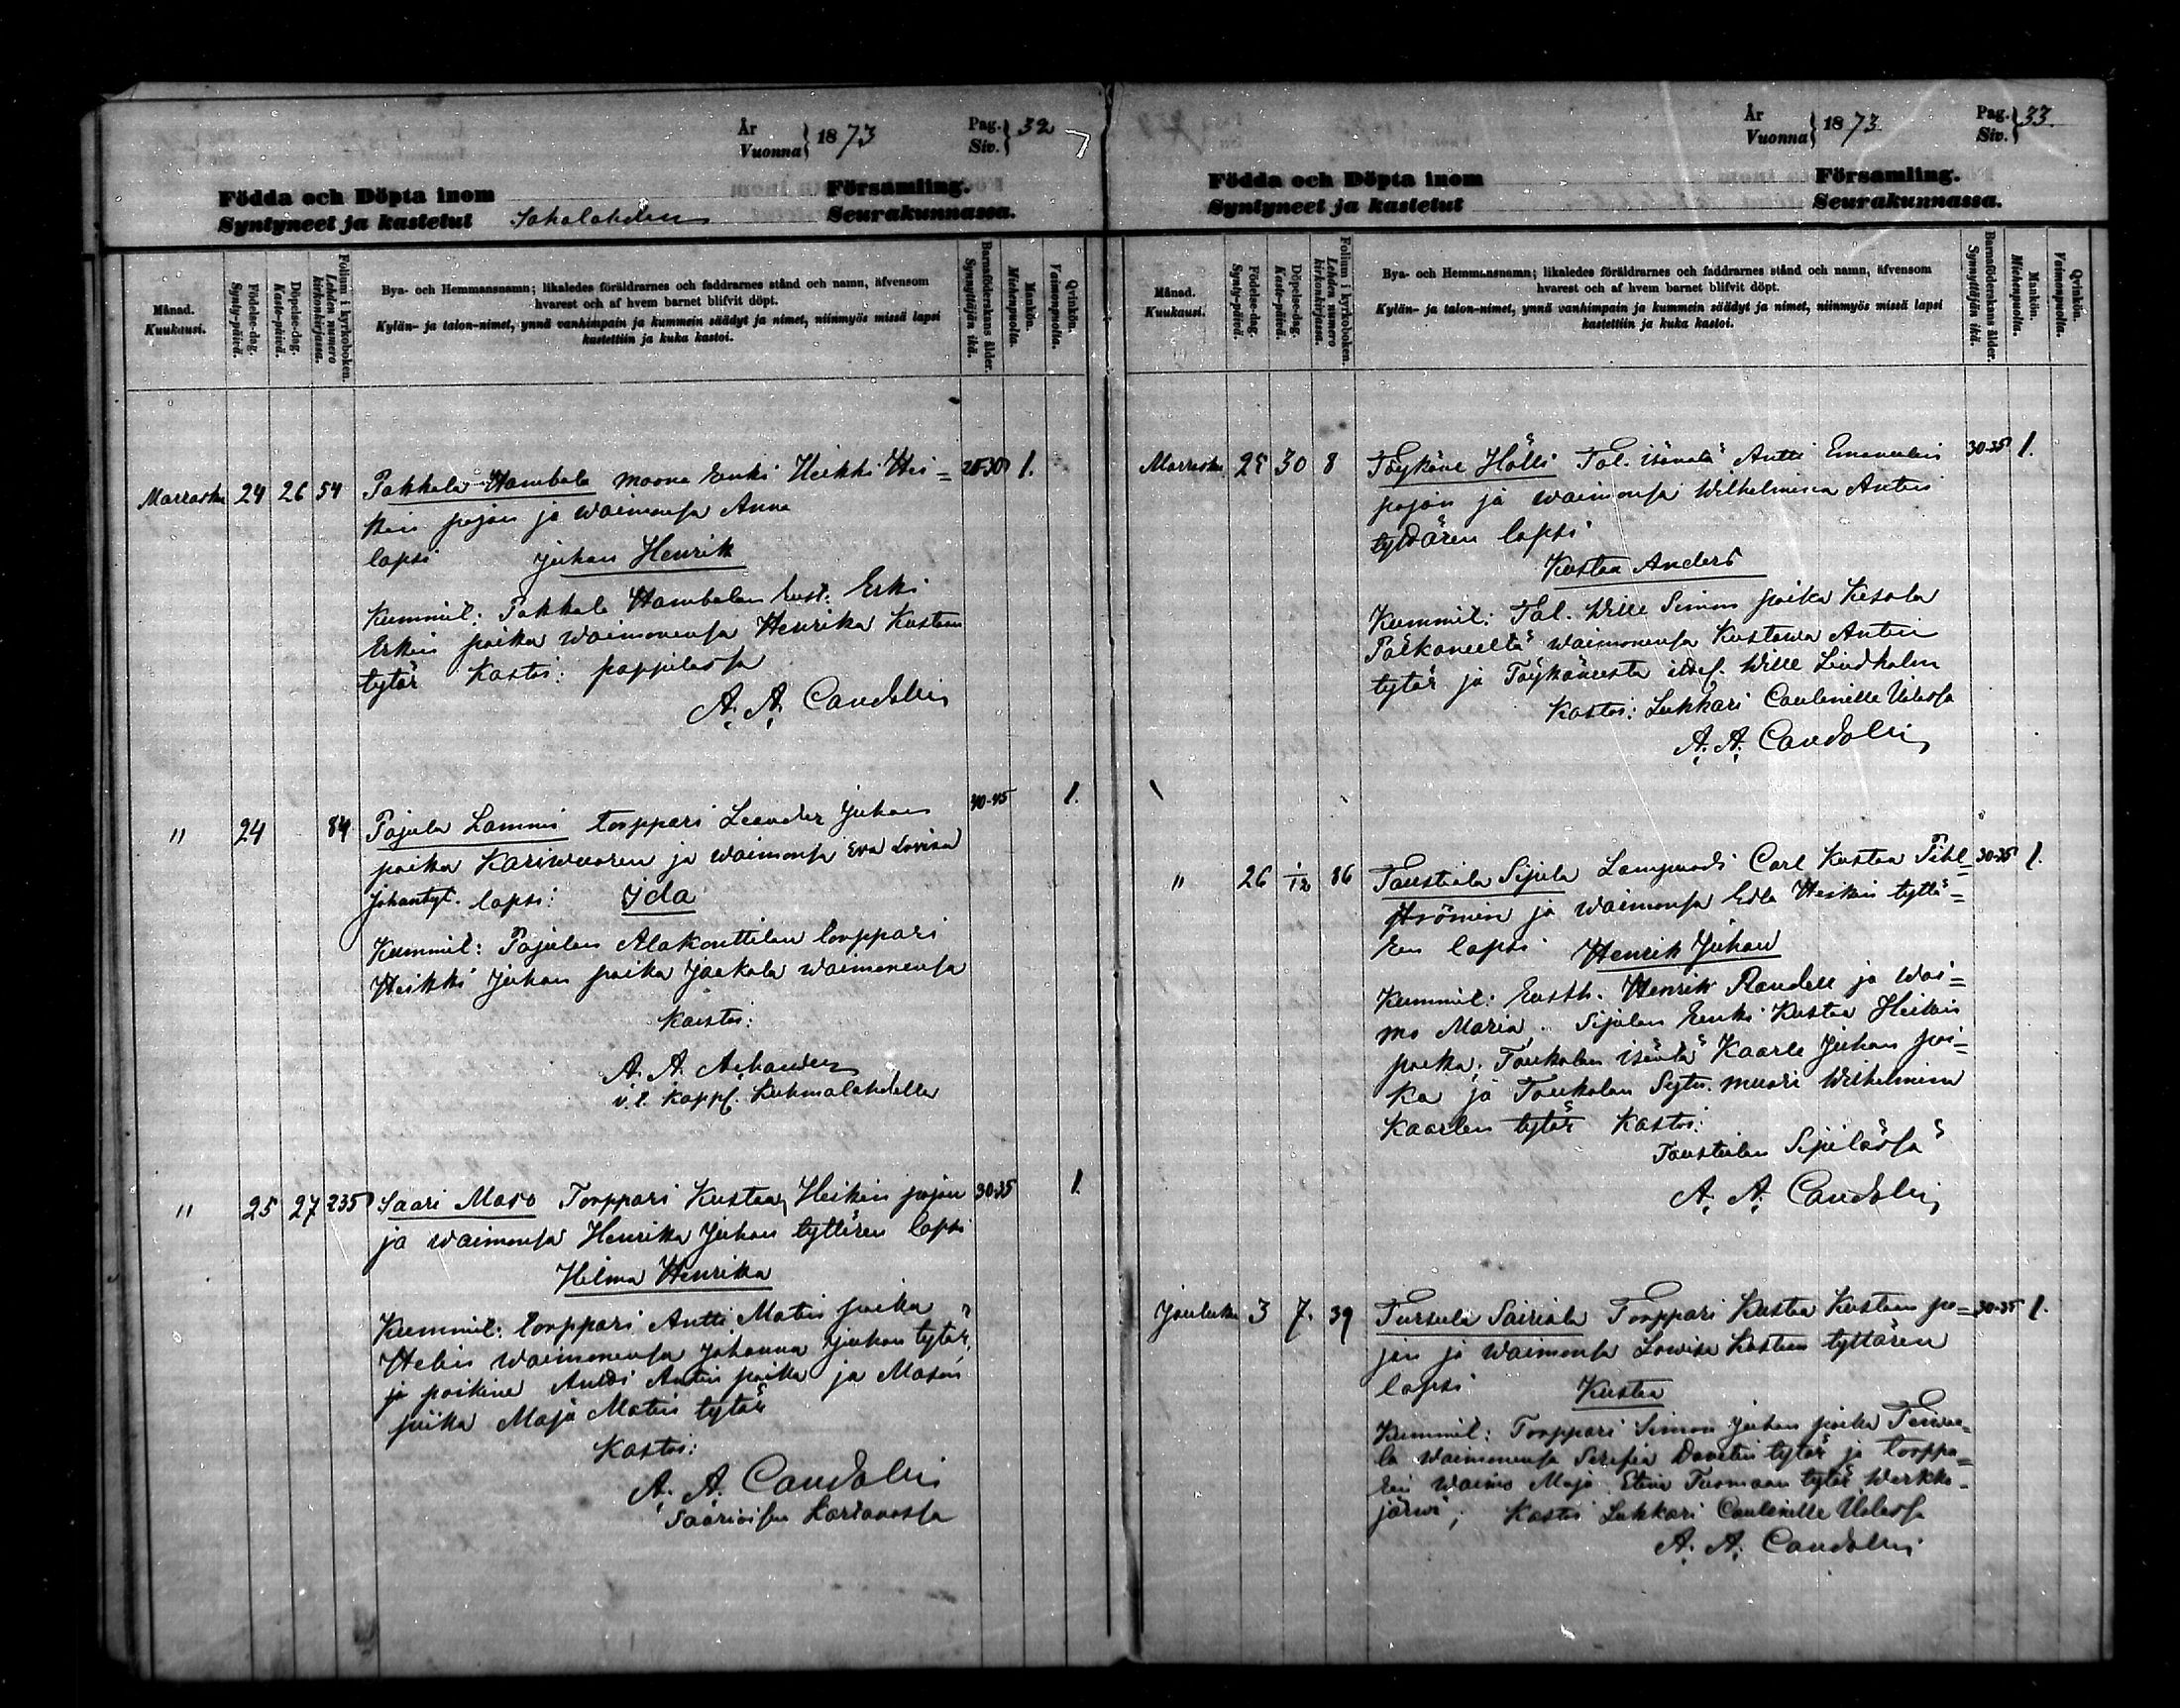 År
Vuonna 1873
Pag.
Siv. 32
Födda och Döpta inom Församling.
Syntyneet ja kastetut Sahalahden Seurakunnassa.
Månad.
Kuukausi.
Födelse-dag.
Synty-päivä.
Döpelse-dag.
Kaste-päivä.
Folium i kyrkoboken.
Lehden numero
kirkonkirjassa.
Bya- och Hemmansnamn; likaledes föräldrarnes och faddrarnes stånd och namn, äfvensom
hvarest och af hvem barnet blifvit döpt.
Kylän- ja talon-nimet, ynnä vanhimpain ja kummein säädyt ja nimet, niinmyös missä lapsi
kastettiin ja kuka kastoi.
Barnaföderskans ålder.
Synnyttäjän ikä.
Mankön.
Miehenpuolta.
Qvinkön.
Vaimonpuolta.
Marrasku 24 26 54 Pakkala Hambala Heikki Hei= 25-30 1.
pojan ja waimonsa Anna
lapsi Juhan Henrik
Kummit: Pakkala Hambalan Erki
Erkin poika waimonensa Henrika Kustaan
tytär Kastoi: pappilassa
A. A. Candolin
" 24 84 Pajula Lammi torppari Leander Juhan 40-45 1.
poika Kariwuoren ja waimonsa Eva Lovisa
Johantyt. lapsi: Ida
Kummit: Pajulan Alakouttilan torppari
Heikki Juhan poika Jaakola waimonensa
Kastoi:
A. A.
v. t. Kappl. Kuhmalahdella
" 25 27 235 Saari Maso Torppari Kustaa Heikin pojan 30-35 1.
ja waimonsa Henrika Juhan tyttären lapsi
Hilma Henrika
Kummit: torppari Antti Matin poika
waimonensa Johanna Juhan tytär,
ja poikine Antti Antin poika ja Mason
piika Maja Matin tytär
Kastoi:
A. A. Candolin
Saarioisten Kartanossa
År
Vuonna 1873
Pag.
Siv. 33.
Födda och Döpta inom Församling.
Syntyneet ja kastetut Seurakunnassa.
Månad.
Kuukausi.
Födelse-dag.
Synty-päivä.
Döpelse-dag.
Kaste-päivä.
Folium i kyrkoboken.
Lehden numero
kirkonkirjassa.
Bya- och Hemmansnamn; likaledes föräldrarnes och faddrarnes stånd och namn, äfvensom
hvarest och af hvem barnet blifvit döpt.
Kylän- ja talon-nimet, ynnä vanhimpain ja kummein säädyt ja nimet, niinmyös missä lapsi
kastettiin ja kuka kastoi.
Barnaföderskans ålder.
Synnyttäjän ikä.
Mankön.
Miehenpuolta.
Qvinkön.
Vaimonpuolta.
Marrasku 25 30 8 Töykäne Hölli Tal. isännä Antti Emanuelin 30-35 1.
pojan ja waimonsa Wilhelmina Antin
tyttären lapsi
Kustaa Anders
Kummit: Tal. Wille Simon poika Kesola
waimonensa Kustawa Antin
tytär ja Töykäneestä Wille Lindholm
Kastoi: Lukkari
A. A. Candolin
" 26 1/12 86 Taustiala Sipila Lampuodi Carl Kustaa Pihl= 30-35 1.
strömin ja waimonsa Edla Heikin tyttä=
ren lapsi Henrik Juhan
Kummit: Henrik Randell ja wai=
mo Maria, Sipilan Renki Kustaa Heikin
poika, Toukolan isäntä Kaarle Juhan poi=
ka ja Toukolan muori Wilhelmina
Kaarlen tytär Kastoi:
Taustialan Sipilässä
A. A. Candolin
Jouluku 3 7. 39 Tursula Sairiala Torppari Kustaa Kustaan po= 30-35 1.
jan ja waimonsa Lowisa Kustaan tyttären
lapsi Kustaa
Kummit: Torppari Simon Juhan poika
la waimonensa Serafia Daavetin tytär ja torppa=
rin waimo Maja Stina Tuomaan tytär Werkko=
järwi; Kastoi Lukkari
A. A. Candolin